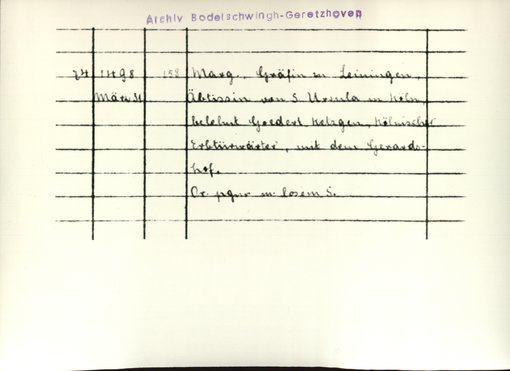 Archiv Bodelschwingh-Geretzhoven
74 1498 158 Marg., Gräfin zu Leiningen,
März 31 Äbtissin von S. Ursula in Köln,
belehnt Goedert Ketzgen, Kölnischer
Erbtürwärter, mit dem Gerards-
hof.
Or. pgm. m. losem S.